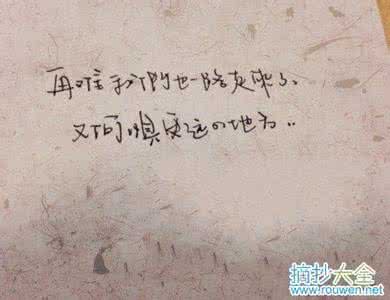 再难我們也一路走来了、
又何惧更远的地方..
摘抄大全
www.rouwen.net